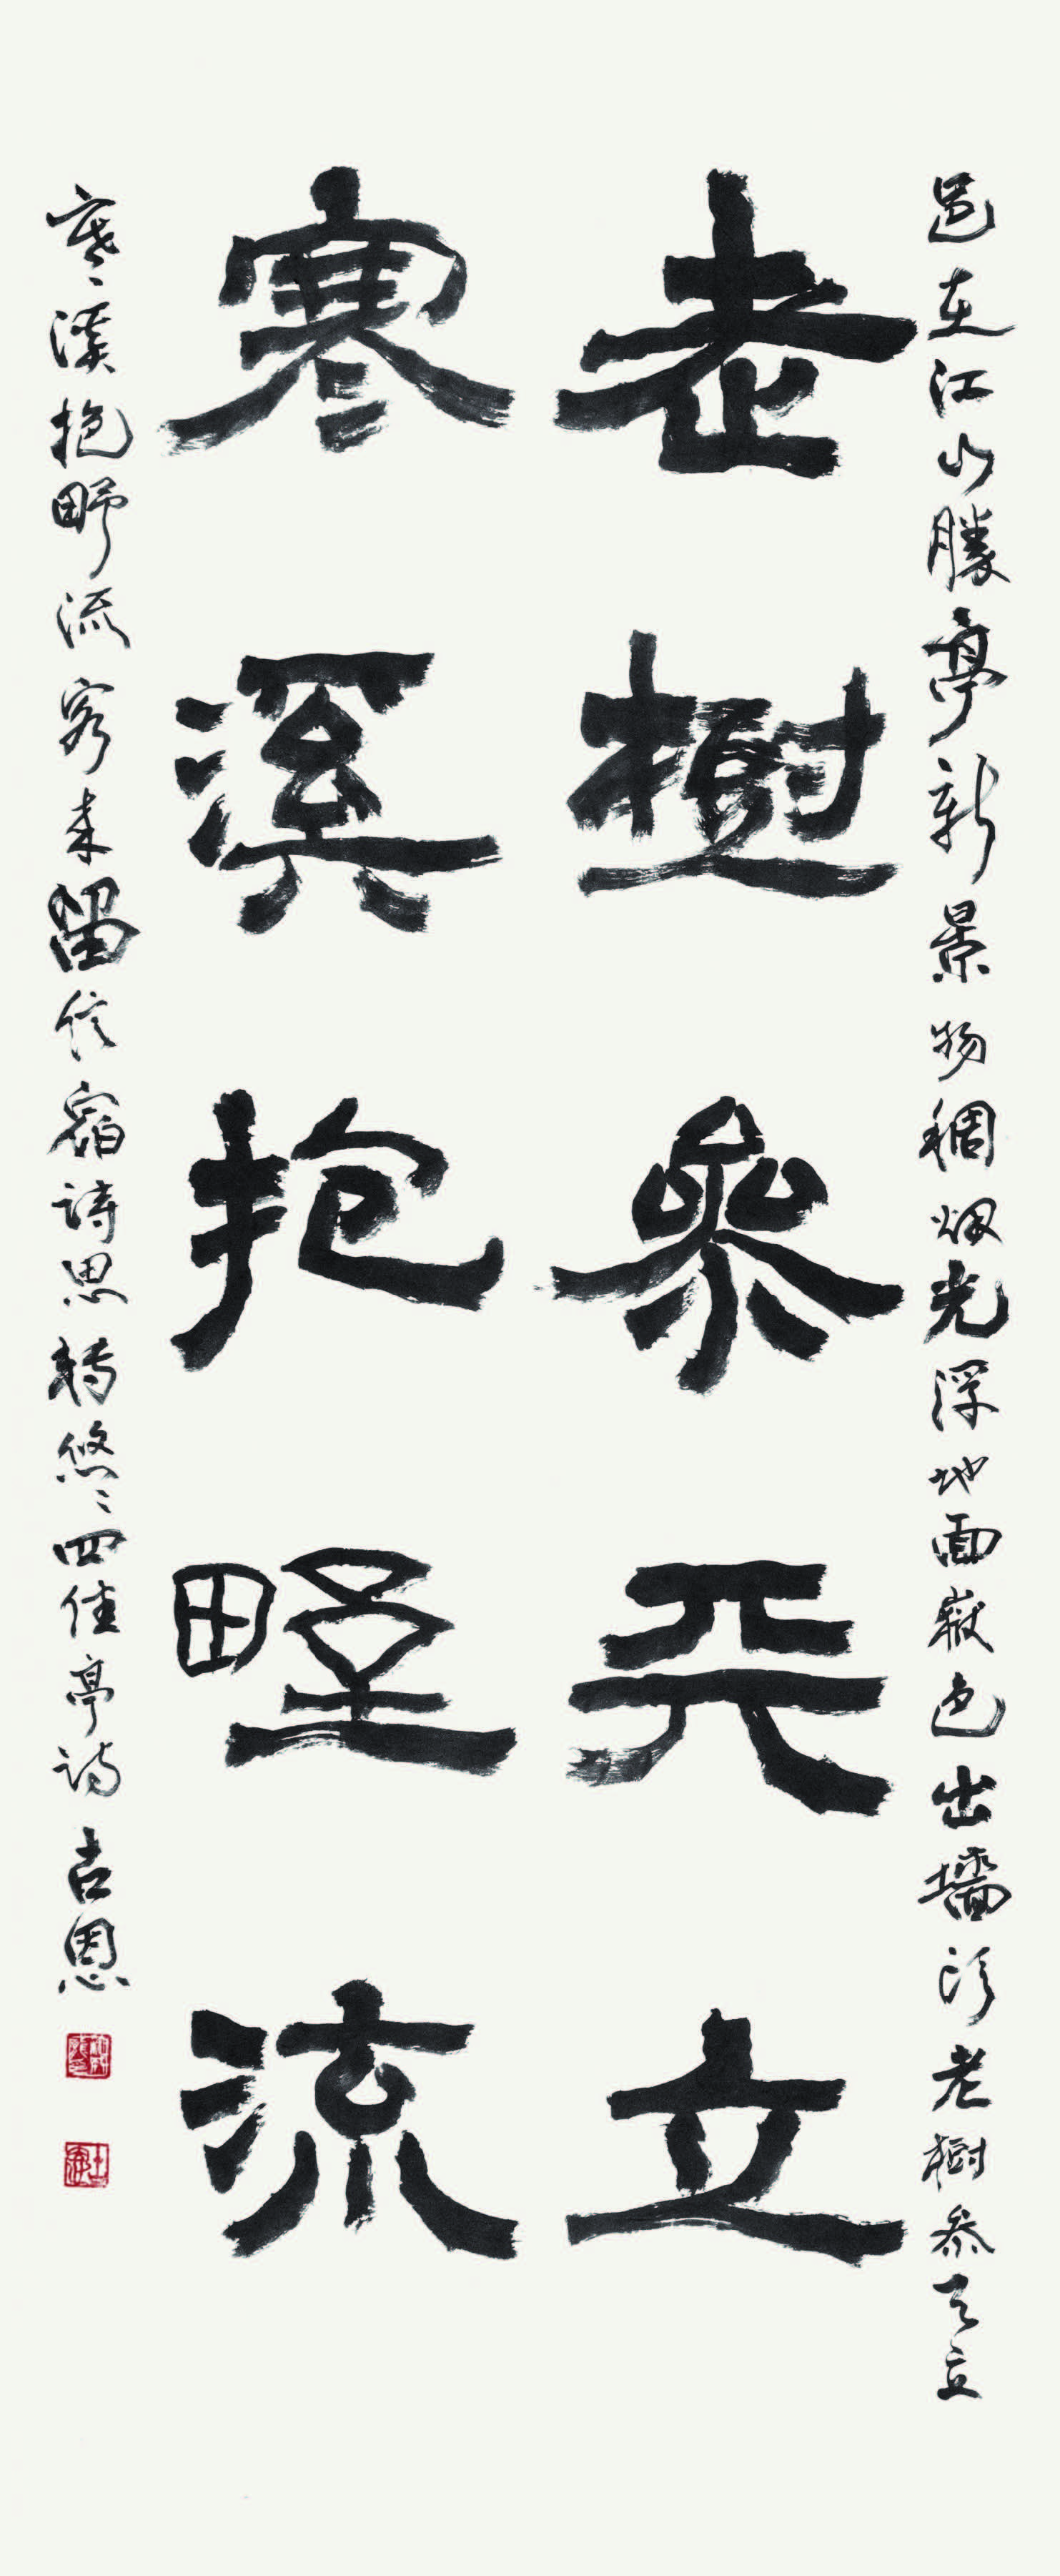 邑在江山勝亭新景物稠烟光浮地面嶽色出墻頭老樹参天立
老樹參天立
寒溪抱野流
寒溪抱野流客来留信宿詩思轉悠々四佳亭詩 古恩